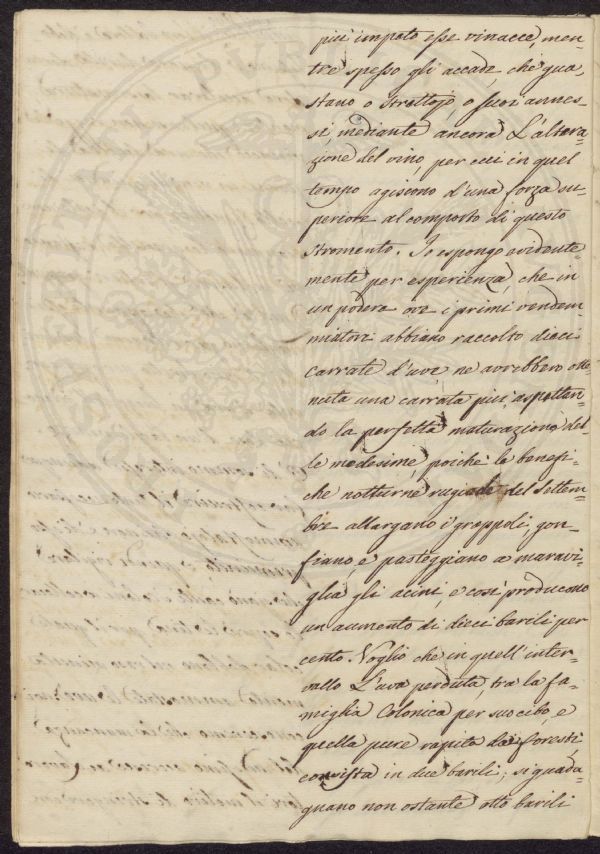 più impoto esse vinacce, men-
tre spesso gli accade, che gua-
stano o strettojo, o suoi annes-
si, mediante ancora l'altera-
zione del vino, per cui in quel
tempo agiscono d'una forza su-
periore al comporto di questo
stromento. Io espongo evidente-
mente per esperienza, che in
un podere ove i primi vendem-
miatori abbiano raccolto dieci
carrate d'uve ne avrebbero otte-
nuta una carrata più, aspettan-
do la perfetta maturazione del-
le medesime, poichè le benefi-
che notturne rugiade del Settem-
bre allargano i grappoli, gon-
fiano, e pasteggiano a maravi-
glia gli acini, e così producono
un aumento di dieci barili per
cento. Voglio che in quell'inter-
vallo l'uva perduta, tra la fa-
miglia Colonica per suo cibo, e
quella pure rapita da foresti,
consista in due barili; si guada-
gnano non ostante otto barili